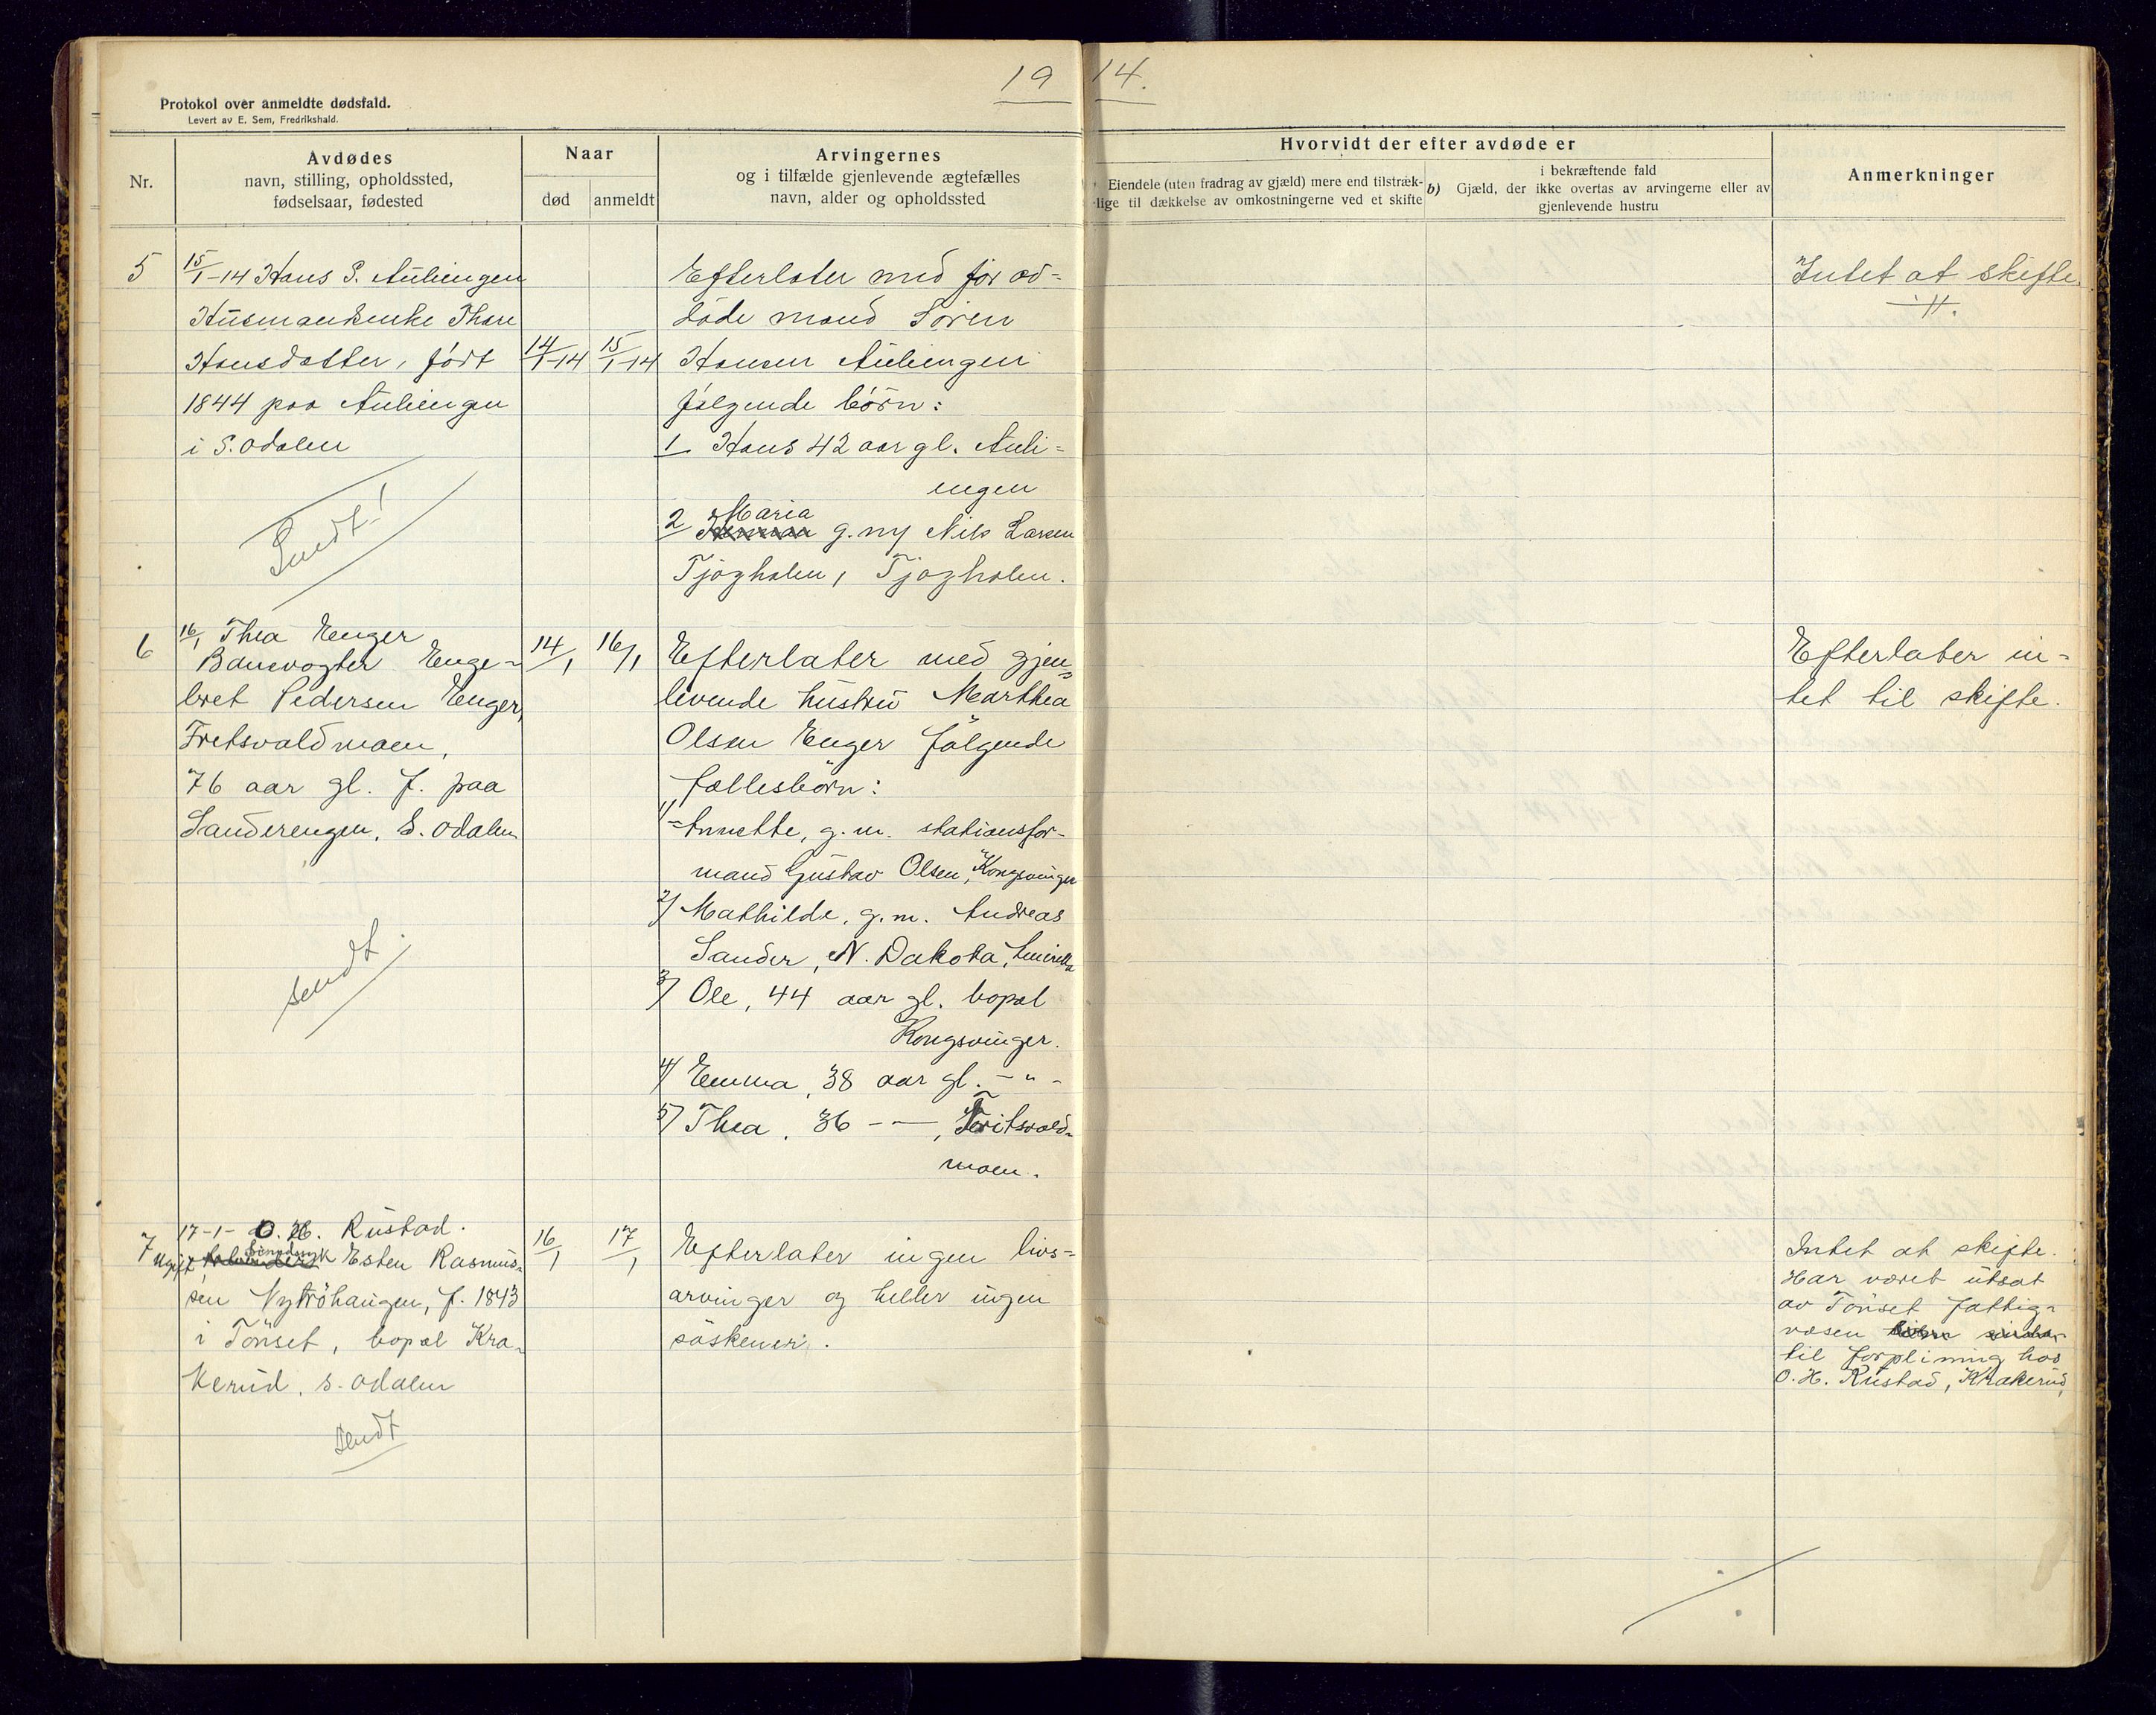 19 14.
Protokol over anmeldte dødsfald.
Levert av E. Sem, Fredrikshald.
Nr.
Avdødes
navn, stilling, opholdssted,
fødselsaar, fødested
Naar
død
anmeldt
Arvingernes
og i tilfælde gjenlevende ægtefælles
navn, alder og opholdssted
Hvorvidt der efter avdøde er
Eiendele (uten fradrag av gjæld) mere end tilstræk-
lige til dækkelse av omkostningerne ved et skifte
i bekræftende fald
b) Gjæld, der ikke overtas av arvingerne eller av
gjenlevende hustru
Anmerkninger
5
15/1-14 Hans S. Auliengen
Husmandsenke Thore
Hansdatter, født
1844 paa Auliengen
i S. Odalen
Sendt!
14/1-14
15/1-14
Efterlater med før av-
døde mand Søren
Hansen Auliengen
følgende børn:
1 Hans 42 aar gl. Auli-
engen
2 Maria g. m/ Nils Larsen
Tjøgholen, Tjøgholen.
Intet at skifte.
6
16/1 Thea Enger
Banevogter Enge-
bret Pedersen Enger,
Fretsvoldmoen,
76 aar gl. f. paa
Sanderengen, S. Odalen
sendt.
14/1
16/1
Efterlater med gjen-
levende hustru Marthea
Olsen Enger følgende
fællesbørn:
1/ Annette, g. m. stationsfor-
mand Gustav Olsen, Kongsvinger
2/ Mathilde, g. m. Andreas
Sander, N. Dakota, Amerika
3/ Ole, 44 aar gl. bopæl
Kongsvinger.
4/ Emma, 38 aar gl. - " -
5/ Thea, 36 - — , Fritsvold-
moen.
Efterlater in-
tet til skifte.
7
17-1- O. H. Rustad.
Ugift sindssyk Esten Rasmus-
sen Nytrøhaugen, f. 1843
i Tønset, bopæl Kra-
kerud, S. Odalen
sendt
16/1
17/1
Efterlater ingen livs-
arvinger og heller ingen
søskener.
Intet at skifte.
Har været utsat
av Tønset fattig-
væsen
til forpleining hos
O. H. Rustad, Krakerud,